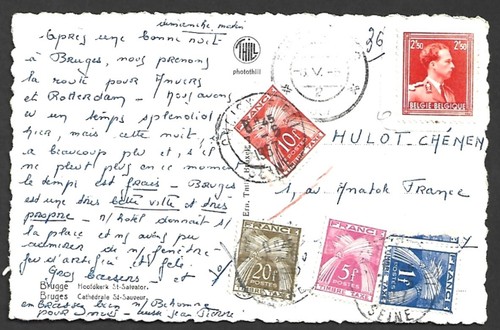 dimanche matin
Après une bonne nuit
à Bruges, nous prenons
la route pour Anvers
et Rotterdam - Nous avons
eu un temps splendide
hier, mais cette nuit, il
a beaucoup plu et s'il
ne pleut plus en ce moment
le temps est frais - Bruges
est une très belle ville et très
propre - n/ hôtel donnait s/
la place et ns avons pu
admirer de n/ fenêtre
feu d'artifice et
Gros baisers - et
Brugge Hoofdkerk St-Salvator.
Bruges Cathédrale St-Sauveur.
Jean Pierre
THILL
photothill
Ern. Thill, Bruxelles
26
- 5. V. -
2
2F50 2F50
BELGIË BELGIQUE
HULOT-CHÉNEN
1, av Anatole France
FRANCE
10F
TIMBRE TAXE
FRANCE
20F
POSTES
TIMBRE TAXE
FRANCE
5F
POSTES
TIMBRE TAXE
FRANCE
1F
POSTES
TIMBRE TAXE
SEINE